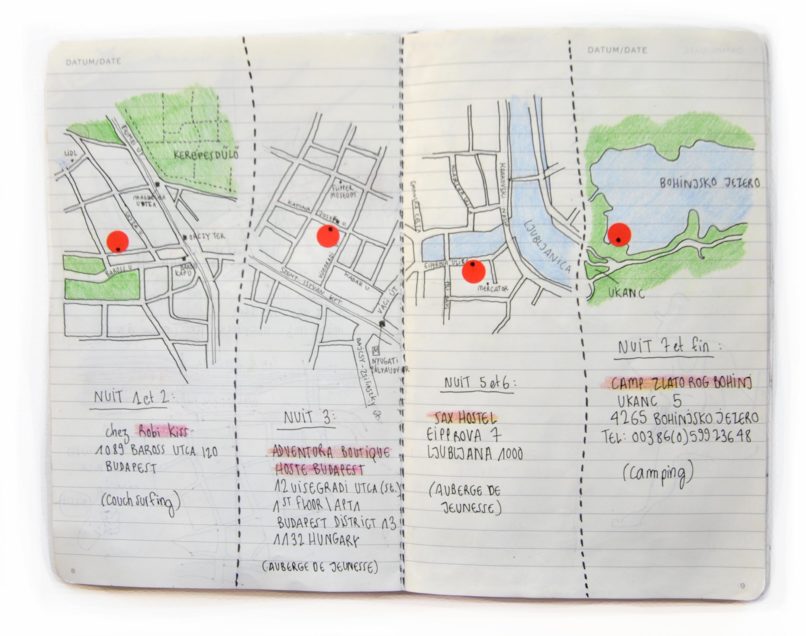 DATUM/DATE
KEREPESDŰLŐ
LIDL
NUIT 1 et 2 :
chez Robi Kiss
1089 BAROSS UTCA 120
BUDAPEST
(Couch surfing)
8
NUIT 3 :
ADVENTORA BOUTIQUE
HOSTE BUDAPEST
12 VISEGRADI UTCA (ST.)
1ST FLOOR \ APT1
BUDAPEST DISTRICT 13
1132 HUNGARY
(AUBERGE DE JEUNESSE)
SZENT ISTVAN KRT
VACI UT
NYUGATI
LJUBLJANICA
MERCATOR
NUIT 5 et 6 :
SAX HOSTEL
EIPPROVA 7
LJUBLJANA 1000
(AUBERGE DE
JEUNESSE)
DATUM/DATE
BOHINJSKO JEZERO
UKANC
NUIT 7 et fin :
CAMP ZLATOROG BOHINJ
UKANC 5
4265 BOHINJSKO JEZERO
TEL: 00386(0)59923648
(Camping)
9